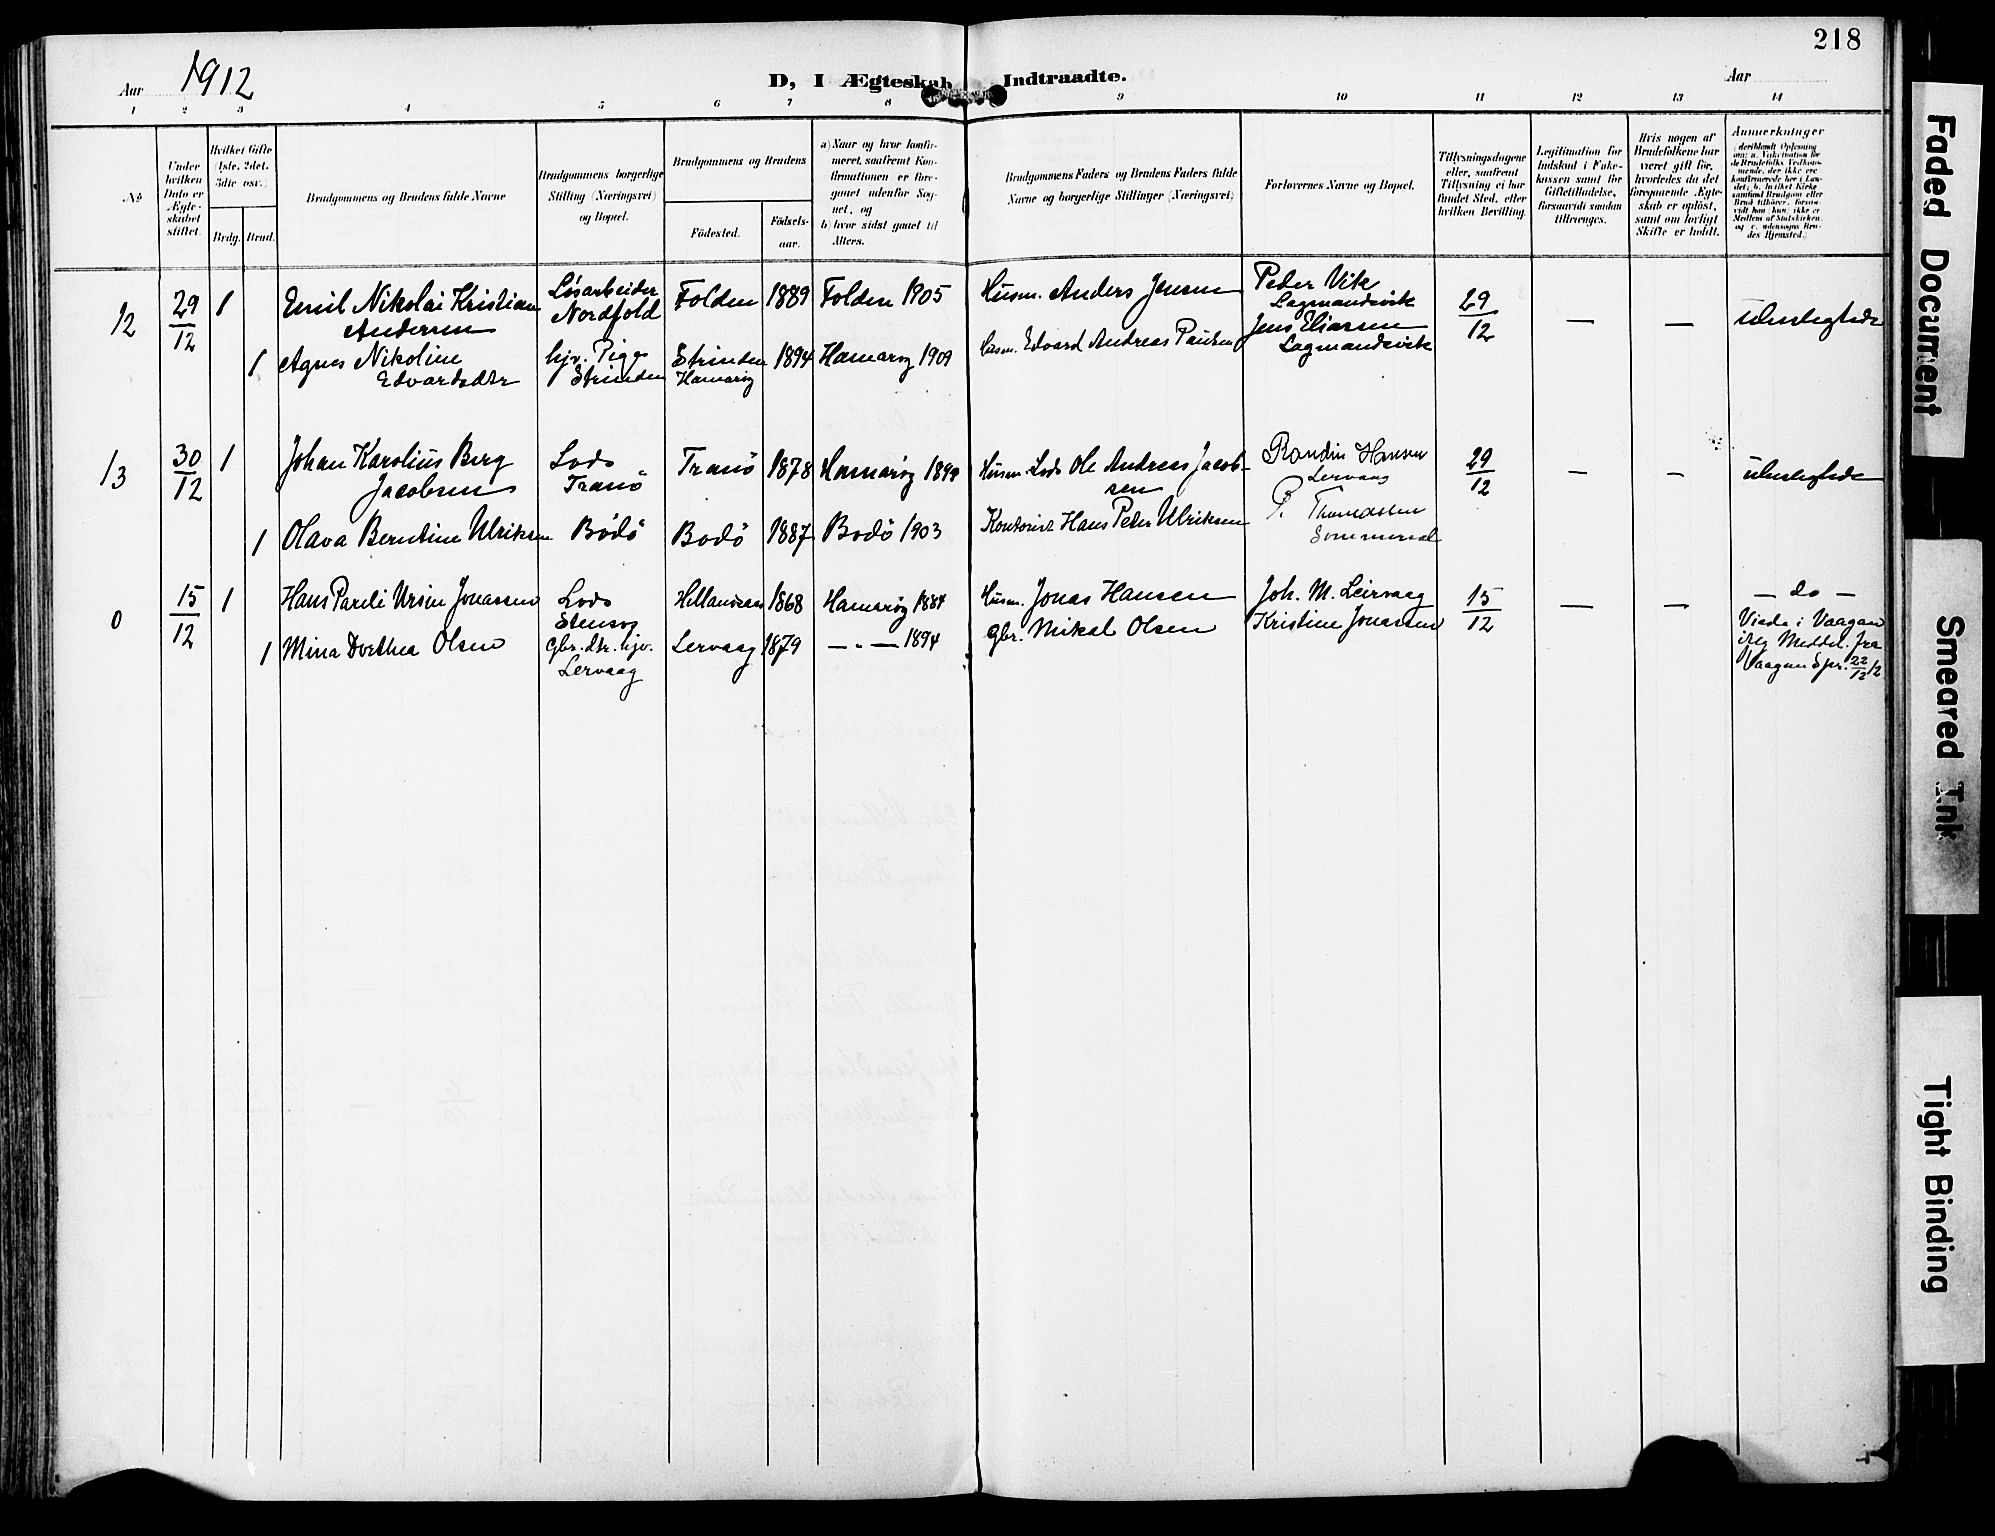 218
Aar 1912
D, I Ægteskab Indtraadte.
Aar
1 2 3 4 5 6 7 8 9 10 11 12 13 14
No.
Under hvilken Dato er Ægteskabet stiftet.
Hvilket Gifte (1ste, 2det, 3die osv.)
Brdg. Brud.
Brudgommens og Brudens fulde Navne
Brudgommens borgerlige Stilling (Næringsvei) og Bopæl.
Brudgommens og Brudens
Födested.
Födsels-aar.
a) Naar og hvor konfirmeret, saafremt Konfirmationen er foregaaet udenfor Sognet, og
b) hvor sidst gaaet til Alters.
Brudgommens Faders og Brudens Faders fulde Navne og borgerlige Stillinger (Næringsvei)
Forlovernes Navne og Bopæl.
Tillysningsdagene eller, saafremt Tillysning ei har fundet Sted, efter hvilken Bevilling.
Legitimation for Indskud i Enkekassen samt for Giftetilladelse, forsaavidt saadan tiltrænges.
Hvis nogen af Brudefolkene har været gift før, hvorledes da det foregaaende Ægteskab er oplöst, samt om lovligt Skifte er holdt.
Anmerkninger
12 29/12 1 Emil Nikolai Kristian Andersen
Løsarbeider Nordfold
Folden 1889 Folden 1905
Husm. Anders Jensen
Peder Vik Lagmandsvik
29/12 — — ubeslegtede
1 Agnes Nikoline Edvardsdtr
hjv. Pige Strinden
Strinden Hamarøy 1894 Hamarøy 1909
Husm. Edvard Andreas Paulsen
Jens Eliassen Lagmandsvik
13 30/12 1 Johan Karolius Berg Jacobsen
Lods Tranö
Tranö 1878 Hamarøy 1892
Husm. Lods Ole Andreas Jacobsen
Hansen Lervaag
29/12 — — ubeslegtede
1 Olava Berntine Ulriksen
Bödö Bodö 1887 Bodö 1903
Kontorist Hans Peter Ulriksen
P. Thomassen
0 15/12 1 Hans Pareli Ursin Jonassen
Lods
1868 Hamarøy 1884
Husm. Jonas Hansen
Joh. M. Leirvaag
15/12 — — — do —
1 Mina Dorthea Olsen
gbr. dtr. hjv. Lervaag
Lervaag 1879 — " — 1894
gbr. Mikal Olsen
Kristine Jonassen
Viede i Vaagan
iflg Meddel. fra
Vaagan Spr. 22/12 12
Faded Document
Smeared Ink
Tight Binding